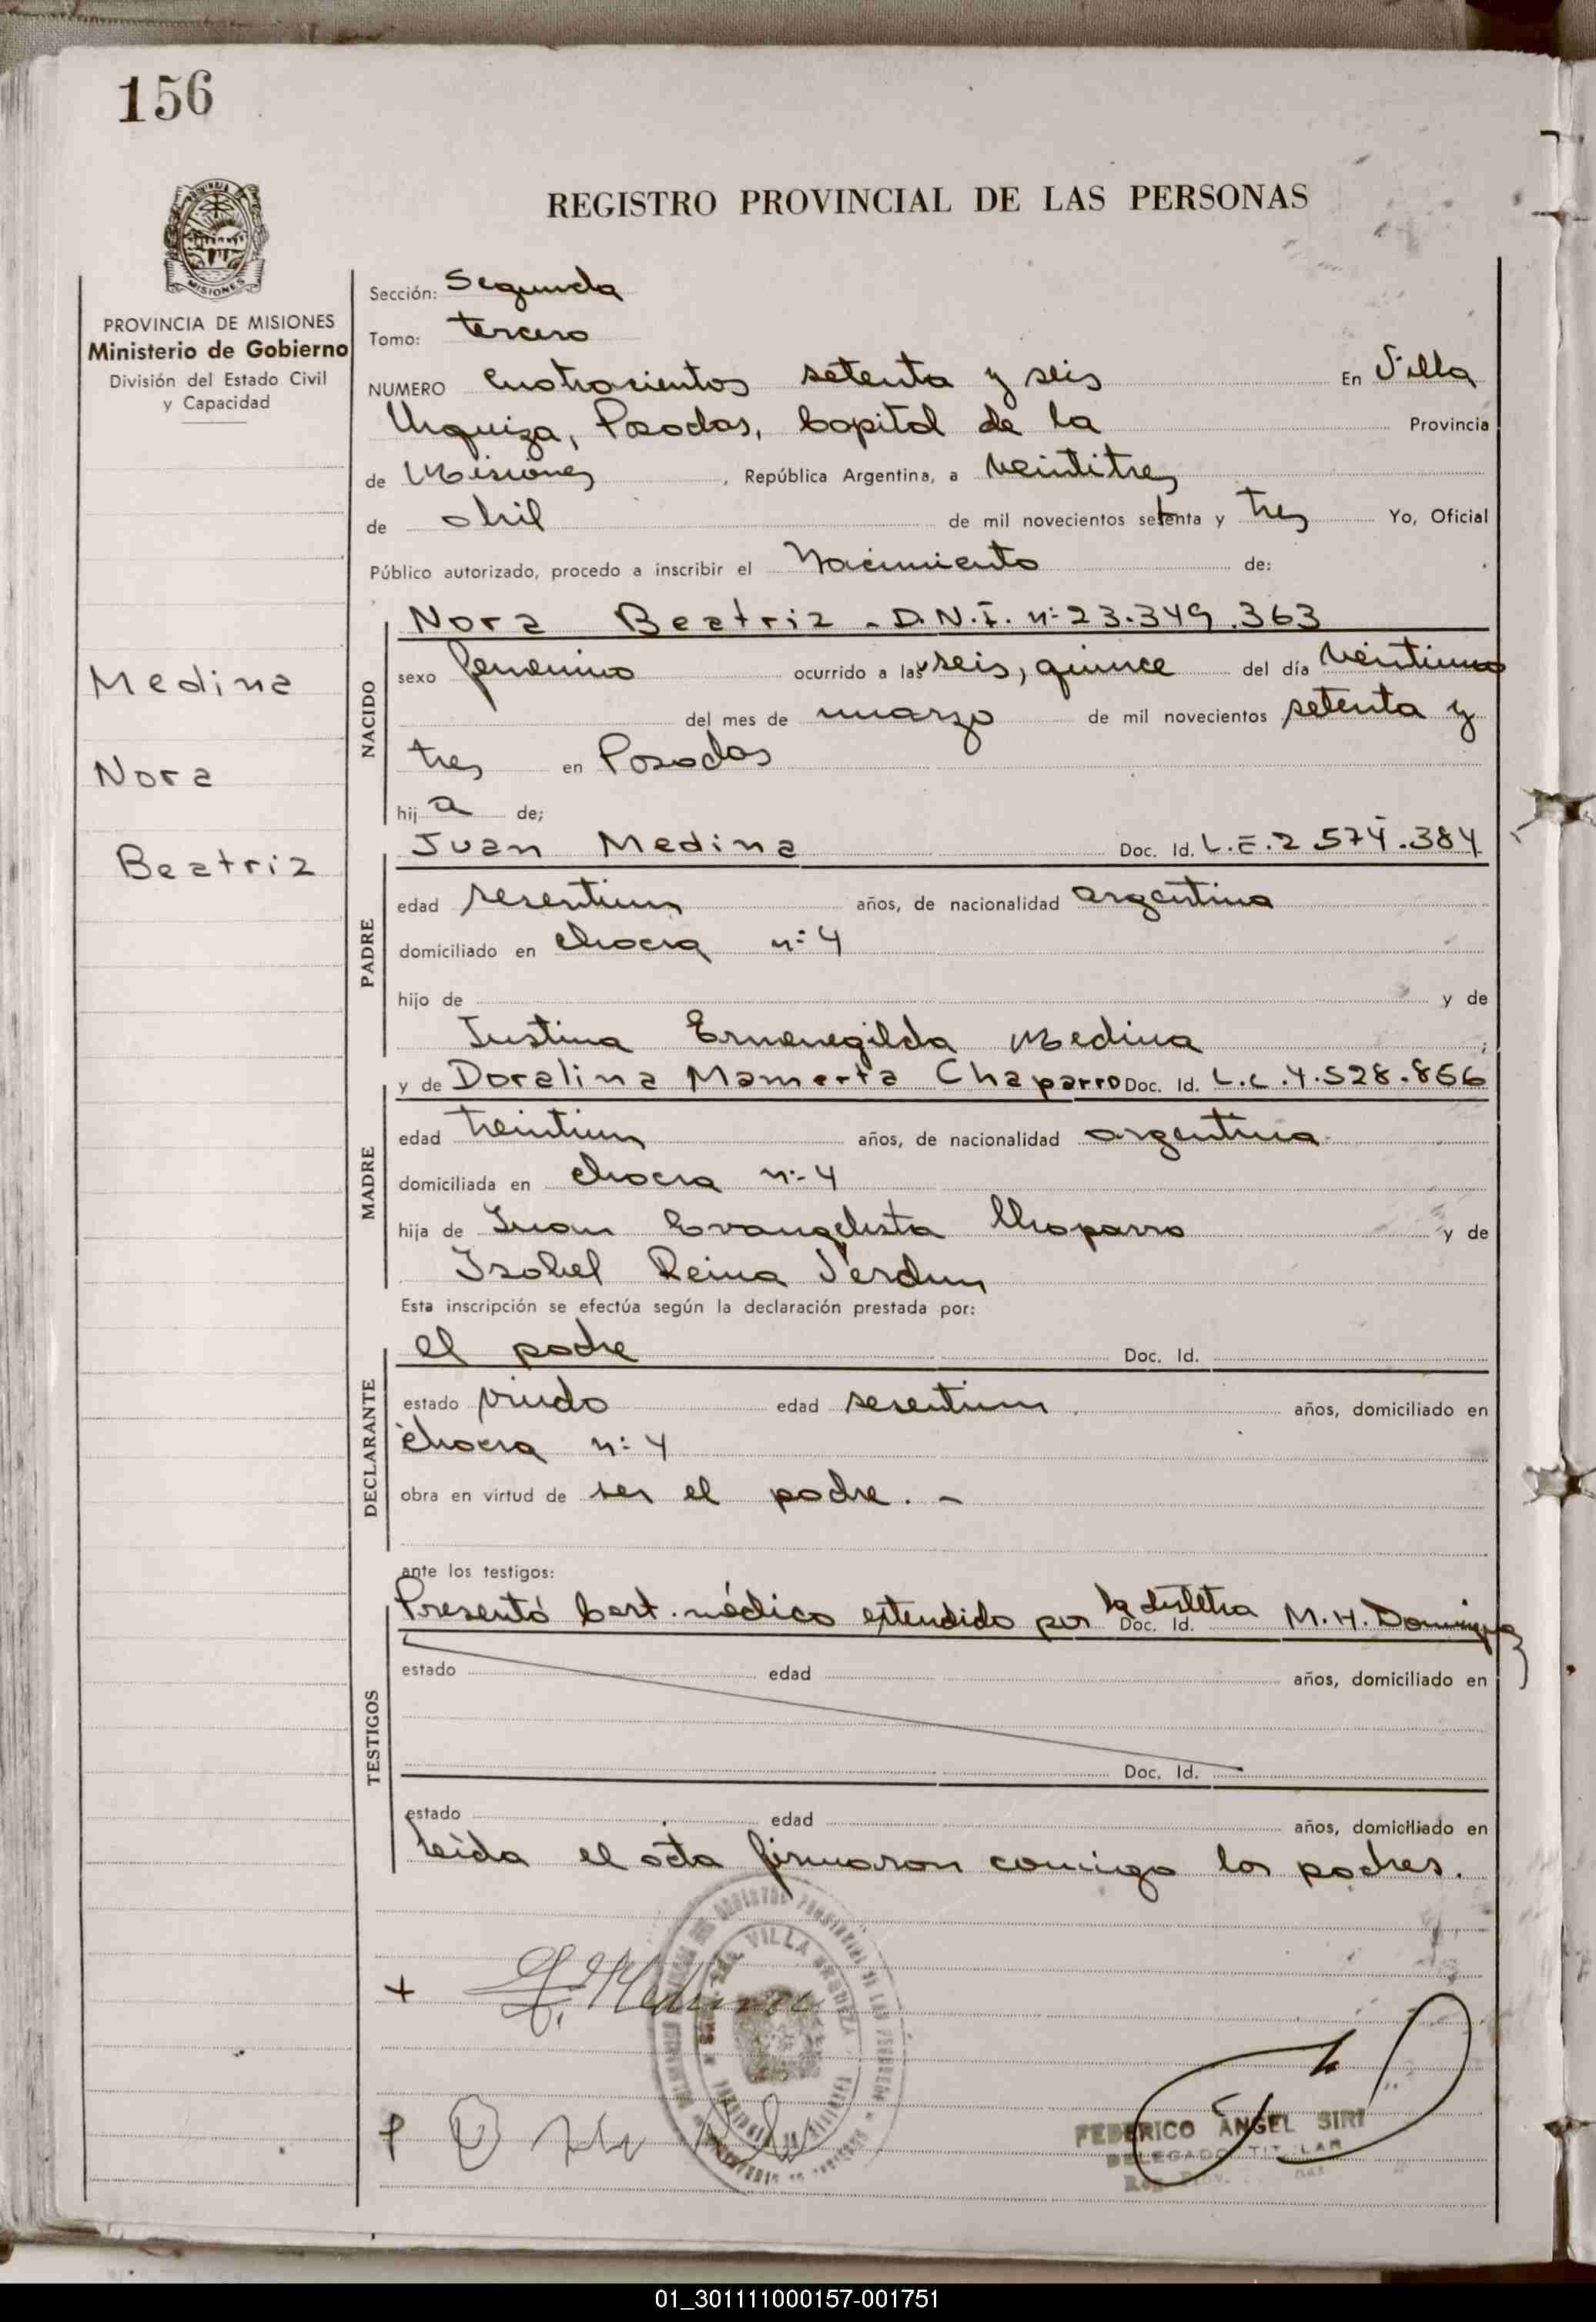 156
REGISTRO PROVINCIAL DE LAS PERSONAS
PROVINCIA DE MISIONES
MISIONES
PROVINCIA DE MISIONES
Ministerio de Gobierno
División del Estado Civil
y Capacidad
Medina
Nora
Beatriz
Sección: Segunda
Tomo: tercero
NUMERO Cuatrocientos setenta y seis En Villa
Urquiza, Posadas, Capital de la Provincia
de Misiones, República Argentina, a veintitres
de abril de mil novecientos setenta y tres Yo, Oficial
Público autorizado, procedo a inscribir el Nacimiento de:
NACIDO
Nora Beatriz - D.N.I. nº 23.349.363
sexo femenino ocurrido a las seis, quince del día veintiuno
del mes de marzo de mil novecientos setenta y
tres en Posadas
hija de;
PADRE
Juan Medina Doc. Id. L.E. 2.574.384
edad sesentiun años, de nacionalidad argentina
domiciliado en chacra nº 4
hijo de y de
Justina Ermenegilda Medina;
MADRE
y de Doralina Mamerta Chaparro Doc. Id. L.C. 4.528.856
edad treintiun años, de nacionalidad argentina
domiciliada en chacra nº 4
hija de Juan Evangelista Chaparro y de
Isabel Reina Verdun
Esta inscripción se efectúa según la declaración prestada por:
DECLARANTE
el padre Doc. Id.
estado viudo edad sesentiun años, domiciliado en
chacra nº 4
obra en virtud de ser el padre. -
ante los testigos:
TESTIGOS
Presentó Cert. médico extendido por la Doc. Id. M.H. Dominguez
estado edad años, domiciliado en
Doc. Id.
estado edad años, domiciliado en
leida el acta firmaron conmigo los padres.
Medina
VILLA URQUIZA
FEDERICO ANGEL SIRI
DELEGADO TITULAR
01_301111000157-001751